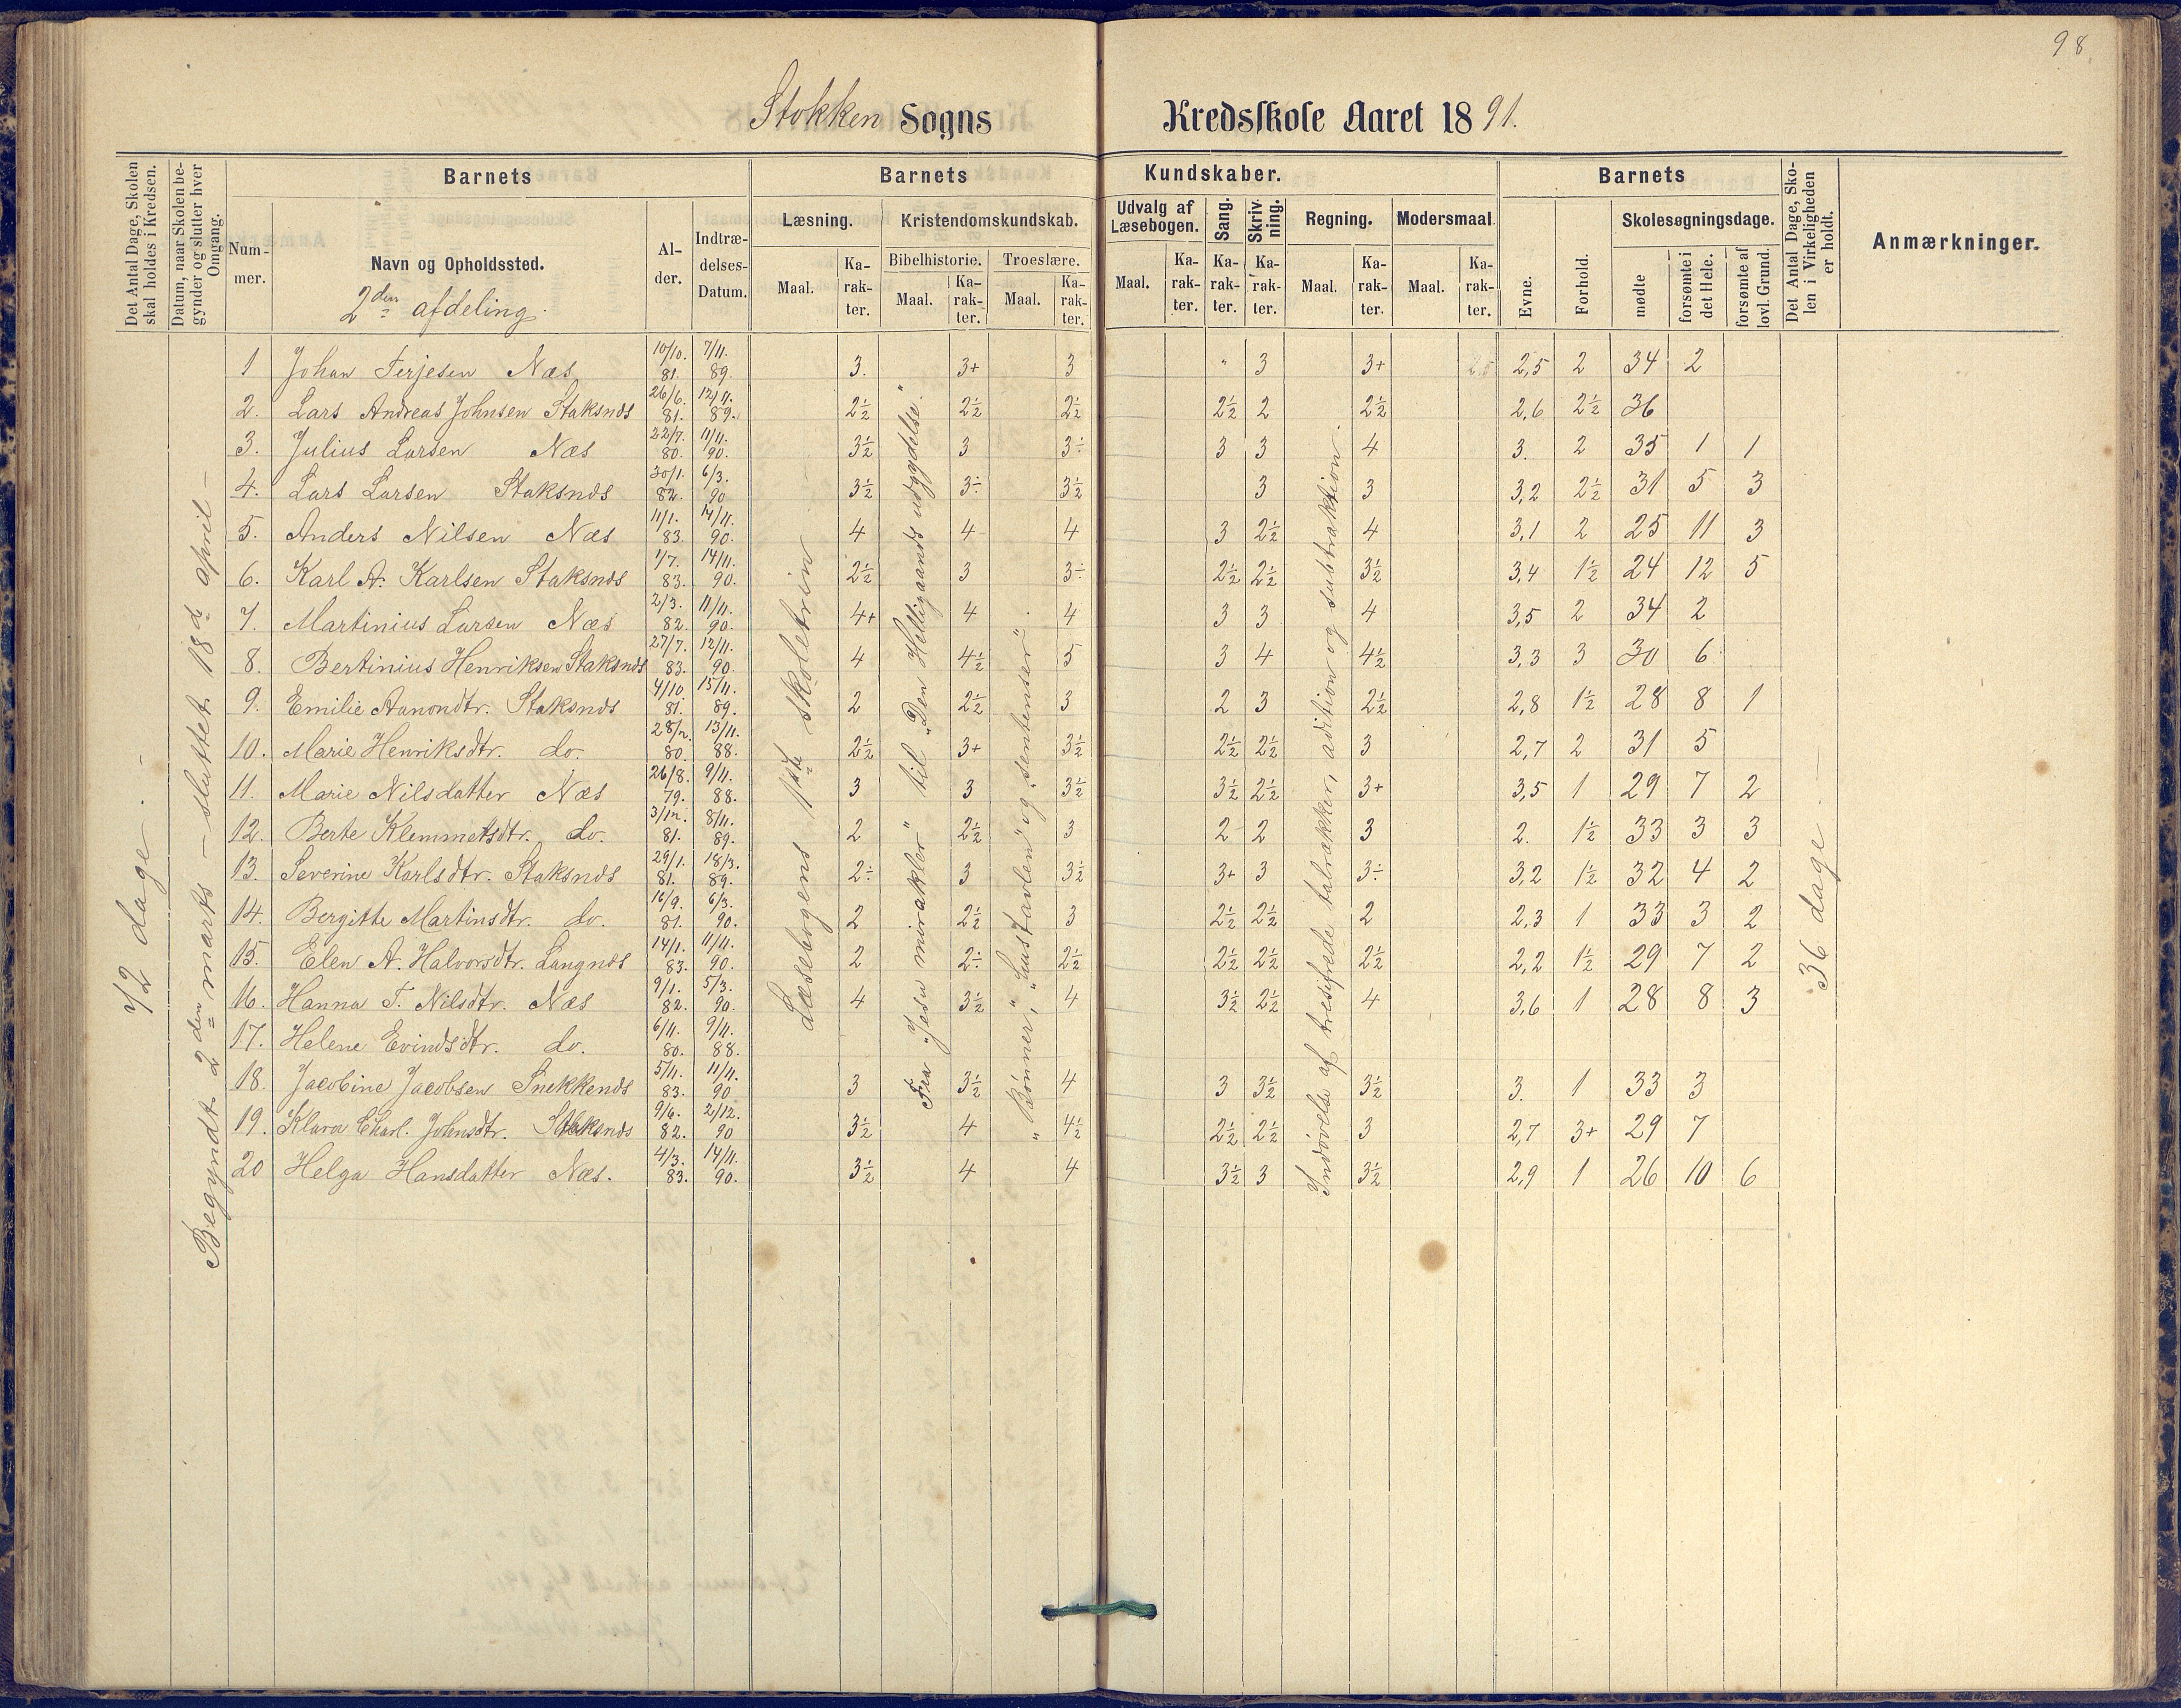 98
Stokken Sogns Kredsskole Aaret 1891.
Det Antal Dage, Skolen skal holdes i Kredsen.
Datum, naar Skolen begynder og slutter hver Omgang.
Barnets Barnets Kundskaber. Barnets
Det Antal Dage, Skolen i Virkeligheden er holdt.
Anmærkninger.
Nummer. Navn og Opholdssted. Alder. Indtrædelses-Datum.
Læsning. Kristendomskundskab. Udvalg af Læsebogen. Sang. Skrivning. Regning. Modersmaal. Evne. Forhold. Skolesøgningsdage.
Bibelhistorie. Troeslære.
Maal. Karakter. Maal. Karakter. Maal. Karakter. Maal. Karakter. Karakter. Karakter. Maal. Karakter. Maal. Karakter. mødte forsømte i det Hele. forsømte af lovl. Grund.
2den afdeling.
72 dage. —
Begyndt 2den marts — sluttet 18de april —
Læsebogens 1ste skoletrin —
Fra "Jesu mirakler" til "Den Helligaands udgydelse."
"Bønner", "Hustavlen" og "sentenser"
Indøvelse af tresifrede talrækker, adition og substraktion.
36 dage —
1 Johan Terjesen Næs 10/10. 81. 7/11. 89. 3. 3+ 3 " 3 3+ 2,5 2,5 2 34 2
2. Lars Andreas Johnsen Staksnds 26/6. 81. 12/11. 89. 2½ 2½ 2½ 2½ 2 2½ 2,6 2½ 36
3. Julius Larsen Næs 22/7. 80. 11/11. 90. 3½ 3 3÷ 3 3 4 3. 2 35 1 1
4. Lars Larsen Staksnds 30/1. 82. 6/3. 90 3½ 3÷ 3½ 3 3 3,2 2½ 31 5 3
5. Anders Nilsen Næs 11/1. 83. 14/11. 90. 4 4 4 3 2½ 4 3,1 2 25 11 3
6. Karl A. Karlsen Staksnds 1/7. 83. 14/11. 90. 2½ 3 3÷ 2½ 2½ 3½ 3,4 1½ 24 12 5
7. Martinius Larsen Næs 2/3. 82. 11/11. 90. 4+ 4 4 3 3 4 3,5 2 34 2
8. Bertinius Henriksen Staksnds 27/7. 83. 12/11. 90 4 4½ 5 3 4 4½ 3,3 3 30 6
9. Emilie Aanondtr. Staksnds 4/10. 81. 15/11. 89. 2 2½ 3 2 3 2½ 2,8 1½ 28 8 1
10. Marie Henriksdtr. do. 28/12. 80. 13/11. 88. 2½ 3+ 3½ 2½ 2½ 3 2,7 2 31 5
11. Marie Nilsdatter Næs 26/8. 79. 9/11. 88. 3 3 3½ 3½ 2½ 3+ 3,5 1 29 7 2
12. Berte Klemmetsdtr. do. 3/12. 81. 8/11. 89. 2 2½ 3 2 2 3 2. 1½ 33 3 3
13. Severine Karlsdtr. Staksnds 29/1. 81. 18/3. 89. 2÷ 3 3½ 3+ 3 3÷ 3,2 1½ 32 4 2
14. Bergitte Martinsdtr. do. 16/9. 81. 6/3. 90. 2 2½ 3 2½ 2½ 2 2,3 1 33 3 2
15. Elen A. Halvorsdtr. Langnds 14/1. 83. 11/11. 90. 2 2÷ 2½ 2½ 2½ 2½ 2,2 1½ 29 7 2
16. Hanna T. Nilsdtr. Næs 9/1. 82. 5/3. 90. 4 3½ 4 3½ 2½ 4 3,6 1 28 8 3
17. Helene Evindsdtr. do. 6/11. 80. 9/11. 88.
18. Jacobine Jacobsen Snekkends 5/11. 83. 11/11. 90 3 3½ 4 3 3½ 3½ 3. 1 33 3
19. Klara Charl. Johnsdtr. Staksnds 9/6. 82. 2/12. 90 3½ 4 4½ 2½ 2½ 3 2,7 3+ 29 7
20 Helga Hansdatter Næs. 4/3. 83. 14/11. 90. 3½ 4 4 3½ 3 3½ 2,9 1 26 10 6